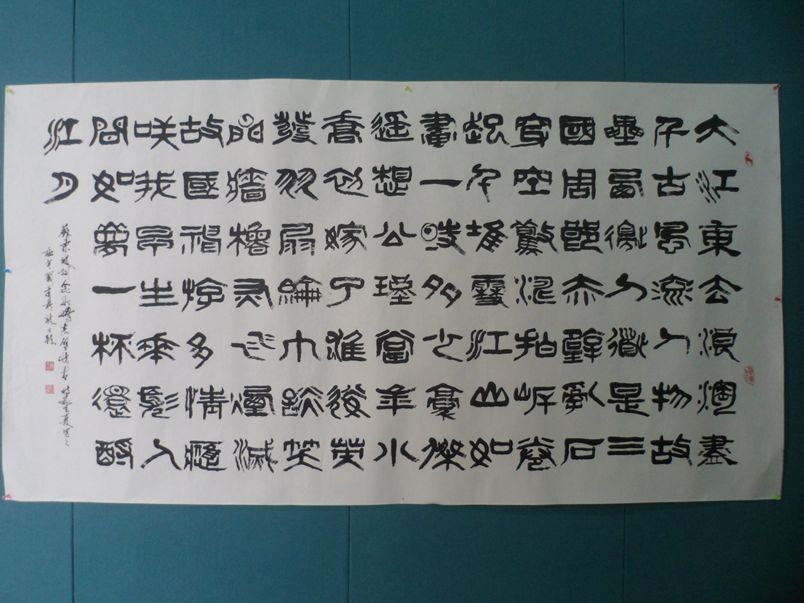 大江東去浪淘盡
千古風流人物故
壘西邊人道是三
國周郎赤壁亂石
穿空驚濤拍岸卷
起千堆雪江山如
畫一時多少豪傑
遥想公瑾當年小
喬初嫁了雄姿英
發羽扇綸巾談笑
間牆櫓灰飛煙滅
故國神遊多情應
咲我早生華髮人
間如夢一杯還酹
江月
蘇東坡詞念奴嬌赤壁懷古